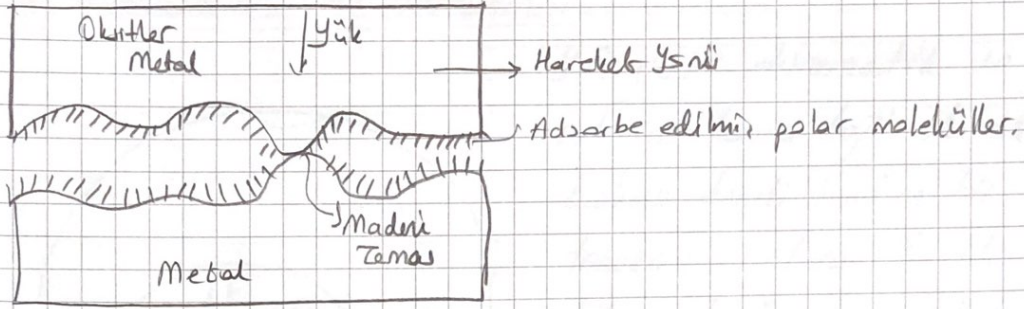 Oksitler
Metal
Yük
Hareket Yönü
Adsorbe edilmiş polar moleküller.
Madeni
Temas
Metal